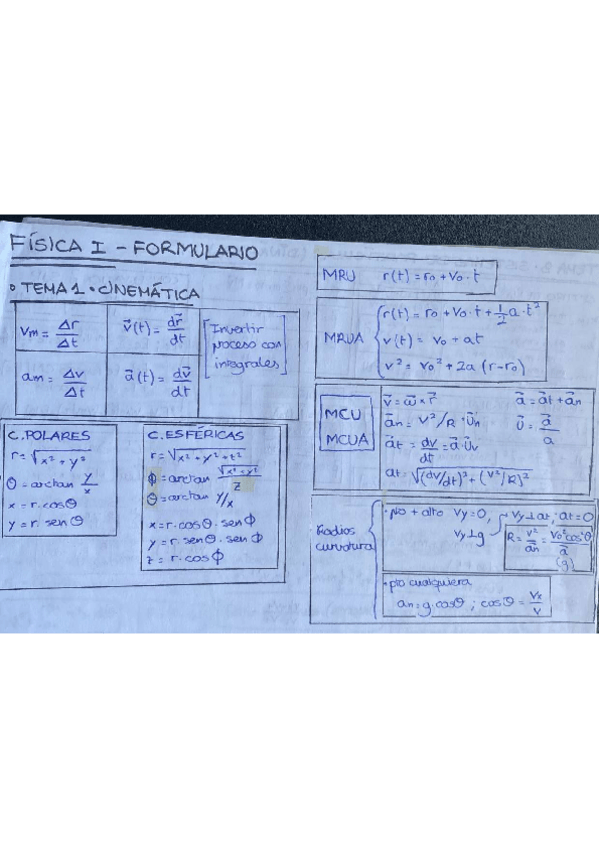 FÍSICA I - FORMULARIO
• TEMA 1 • CINEMÁTICA
Vm = Δr/Δt
v⃗(t) = dr⃗/dt
[Invertir proceso con integrales]
am = Δv/Δt
a⃗(t) = dv⃗/dt
C. POLARES
r = √x² + y²
θ = arctan y/x
x = r · cosθ
y = r · senθ
C. ESFÉRICAS
r = √x² + y² + z²
ϕ = arctan √x² + y²/z
θ = arctan y/x
x = r · cosθ · senϕ
y = r · senθ · senϕ
z = r · cosϕ
MRU r(t) = r₀ + V₀ · t
MRUA
r(t) = r₀ + V₀ · t + 1/2 a · t²
v(t) = v₀ + at
v² = v₀² + 2a (r - r₀)
MCU
MCUA
v⃗ = ω⃗ × r⃗
a⃗ = a⃗t + a⃗n
a⃗n = V²/R · u⃗n
u⃗ = a⃗/a
a⃗t = dv/dt = a⃗ · u⃗v
at = √(dv/dt)² + (v²/R)²
Radios curvatura
• pto + alto Vy = 0, Vy ⊥ at; at = 0
Vy ⊥ g
R = v²/an = V₀²cos²θ/a
(g)
• pto cualquiera
an = g · cosθ ; cosθ = Vx/V